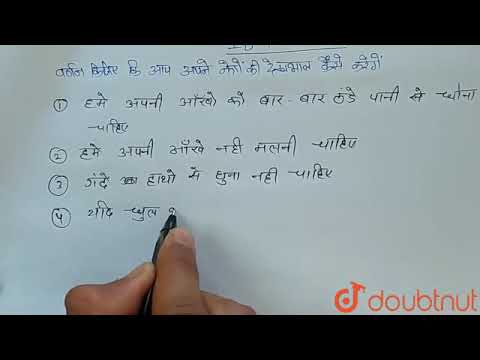 वर्णन कीजिए कि आप अपने नेत्रों की देखभाल कैसे करेंगें
① हमे अपनी आँखो को बार-बार ठंडे पानी से धोना
चाहिए
② हमे अपनी आँखे नही मलनी चाहिए
③ गंदे हाथो से छुना नही चाहिए
④ यदि धुल
doubtnut